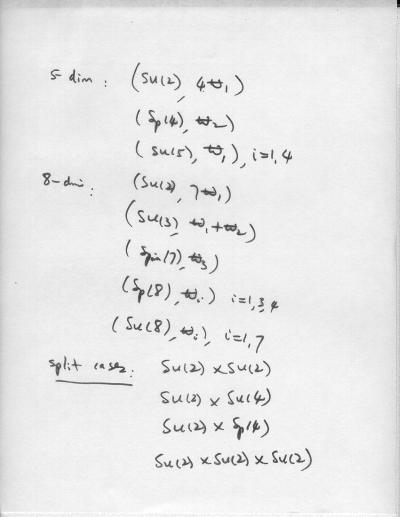 5-dim : (SU(2), 4ϖ₁)
(Sp(4), ϖ₂)
(SU(5), ϖᵢ), i=1,4
8-dim : (SU(2), 7ϖ₁)
(SU(3), ϖ₁+ϖ₂)
(Spin(7), ϖ₃)
(Sp(8), ϖᵢ) i=1,3,4
(SU(8), ϖᵢ), i=1,7
split cases:
SU(2) × SU(2)
SU(2) × SU(4)
SU(2) × Sp(4)
SU(2) × SU(2) × SU(2)